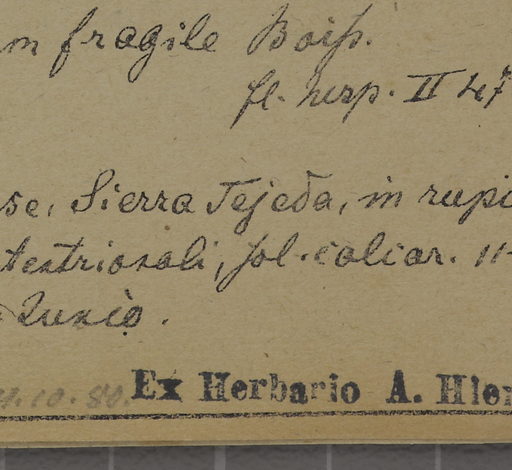 m fragile Boiss.
fl. hisp. II 47
se, Sierra Tejeda, in rupi
austriorali, sol. calcar. 11-
Junio.
.10.80. Ex Herbario A. Hier